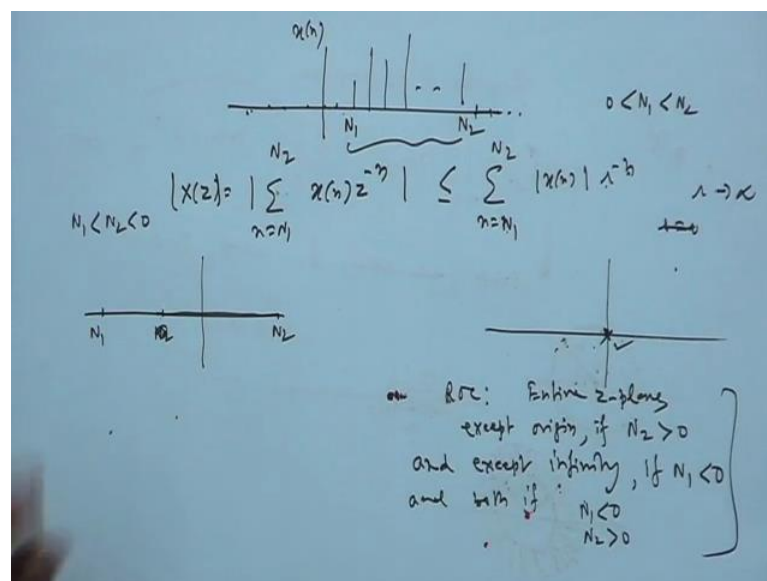 x(n)
N₁ N₂
0 < N₁ < N₂
|X(z)| = | Σ_{n=N₁}^{N₂} x(n) z⁻ⁿ | ≤ Σ_{n=N₁}^{N₂} |x(n)| r⁻ⁿ
r → ∝
N₁ < N₂ < 0
N₁ N₂
ROC: Entire z-plane,
except origin, if N₂ > 0
and except infinity, if N₁ < 0
and both if N₁ < 0
N₂ > 0